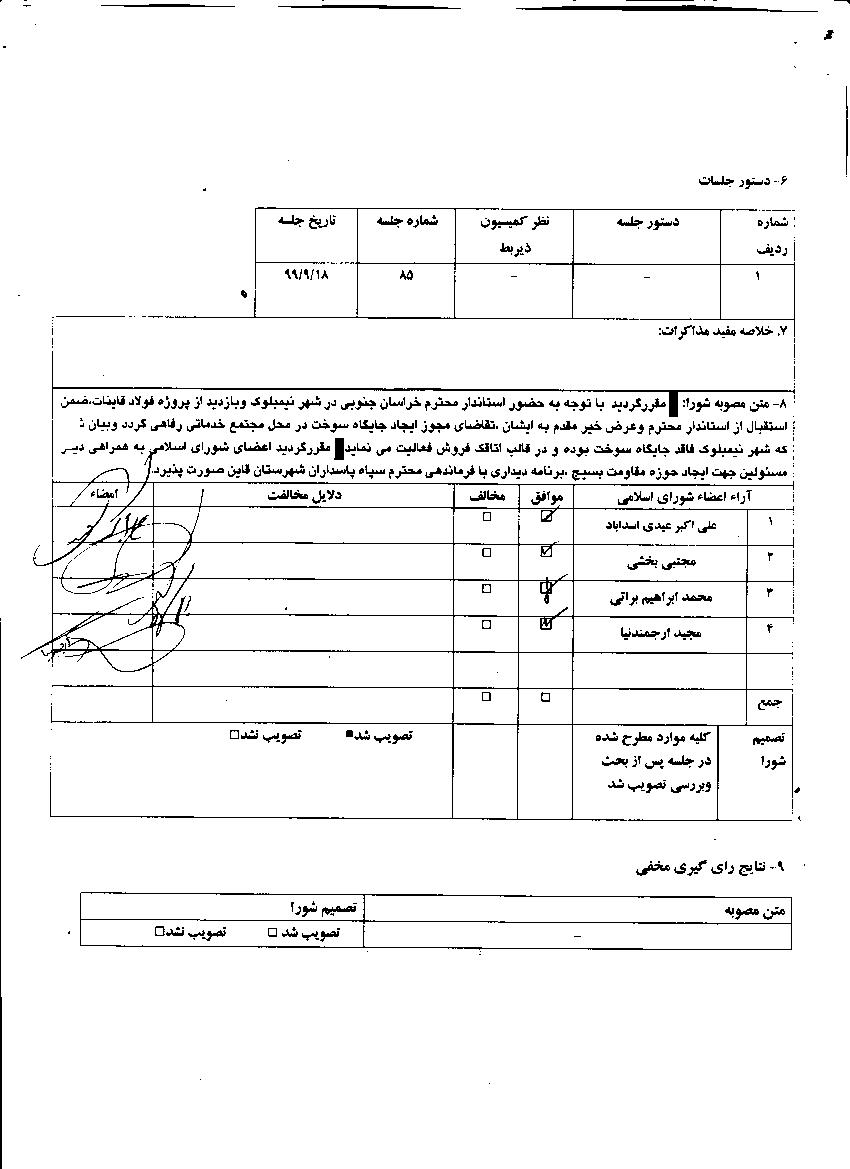 ۶- دستور جلسات
شماره ردیف	دستور جلسه	نظر کمیسیون ذیربط	شماره جلسه	تاریخ جلسه
۱	–	–	۸۵	۹۹/۹/۱۸
۷. خلاصه مفید مذاکرات:
۸- متن مصوبه شورا: مقررگردید با توجه به حضور استاندار محترم خراسان جنوبی در شهر نیمبلوک وبازدید از پروژه فولاد قاینات،ضمن
استقبال از استاندار محترم وعرض خیر مقدم به ایشان ،تقاضای مجوز ایجاد جایگاه سوخت در محل مجتمع خدماتی رفاهی گردد وبیان
که شهر نیمبلوک فاقد جایگاه سوخت بوده و در قالب اتاقک فروش فعالیت می نماید مقررگردید اعضای شورای اسلامی به همراهی دیـر
مسئولین جهت ایجاد حوزه مقاومت بسیج ،برنامه دیداری با فرماندهی محترم سپاه پاسداران شهرستان قاین صورت پذیرد.
آراء اعضاء شورای اسلامی	موافق	مخالف	دلایل مخالفت	امضاء
۱	علی اکبر عیدی اسداباد	☑	☐
۲	مجتبی بخشی	☑	☐
۳	محمد ابراهیم براتی	☑	☐
۴	مجید ارجمندنیا	☑	☐
جمع	☐	☐
تصمیم شورا	کلیه موارد مطرح شده در جلسه پس از بحث وبررسی تصویب شد	تصویب شد■	تصویب نشد☐
۹- نتایج رای گیری مخفی
متن مصوبه	تصمیم شورا
–	تصویب شد ☐	تصویب نشد☐